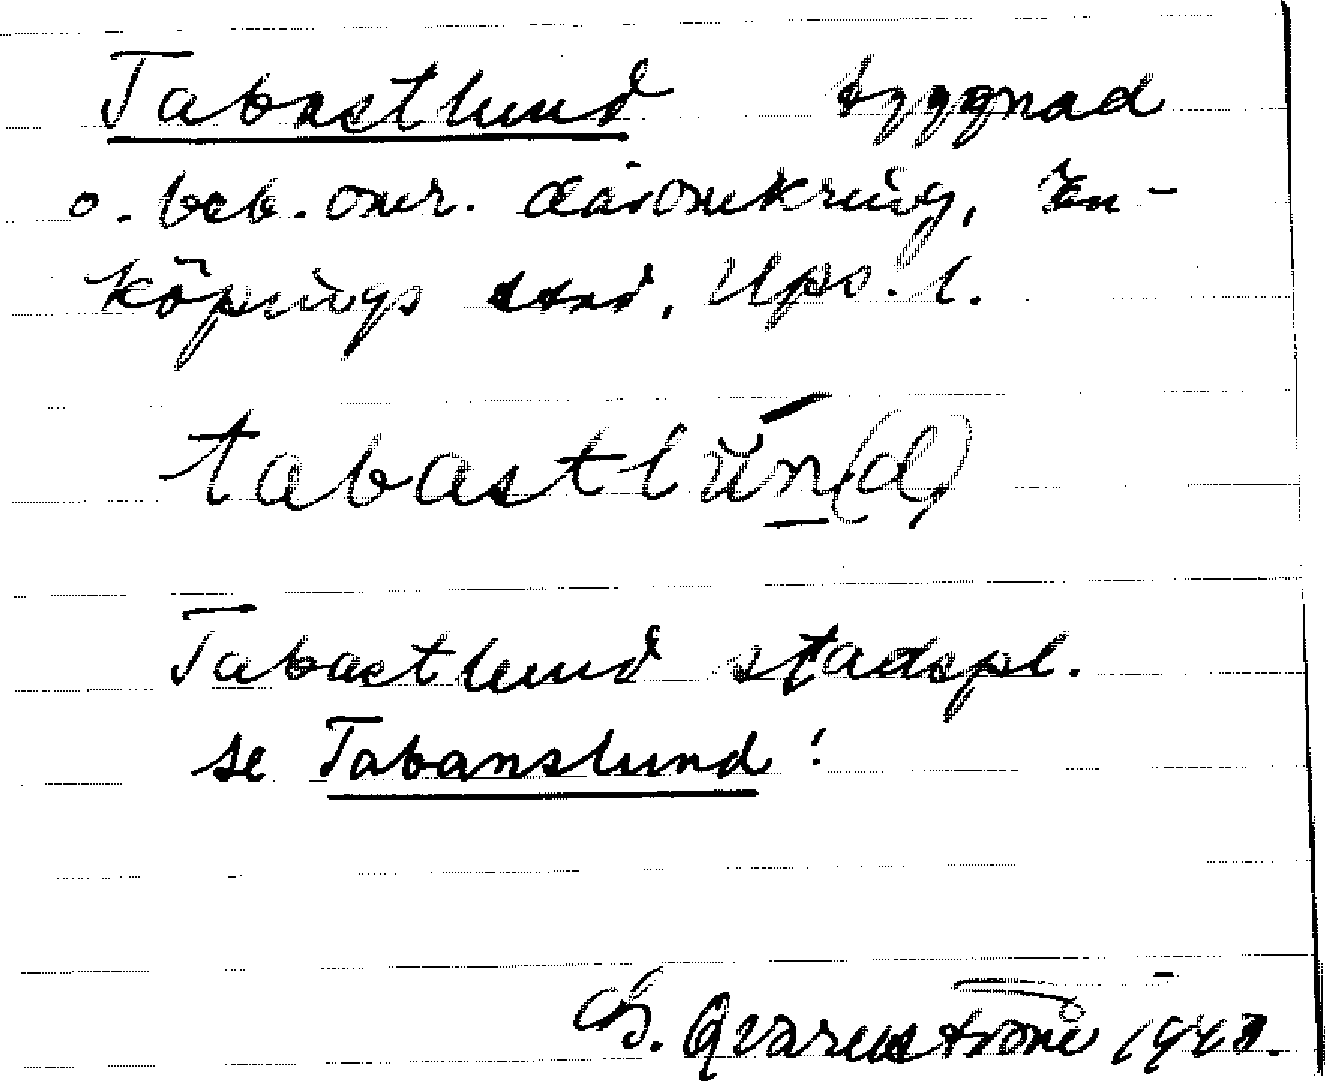 Tabastlund byggnad
o. beb. omr. däromkring, En-
köpings stad, Upps. l.
tabastlún(d)
Tabastlund stadspl.
se Tabanslund!
G. Qvarnström